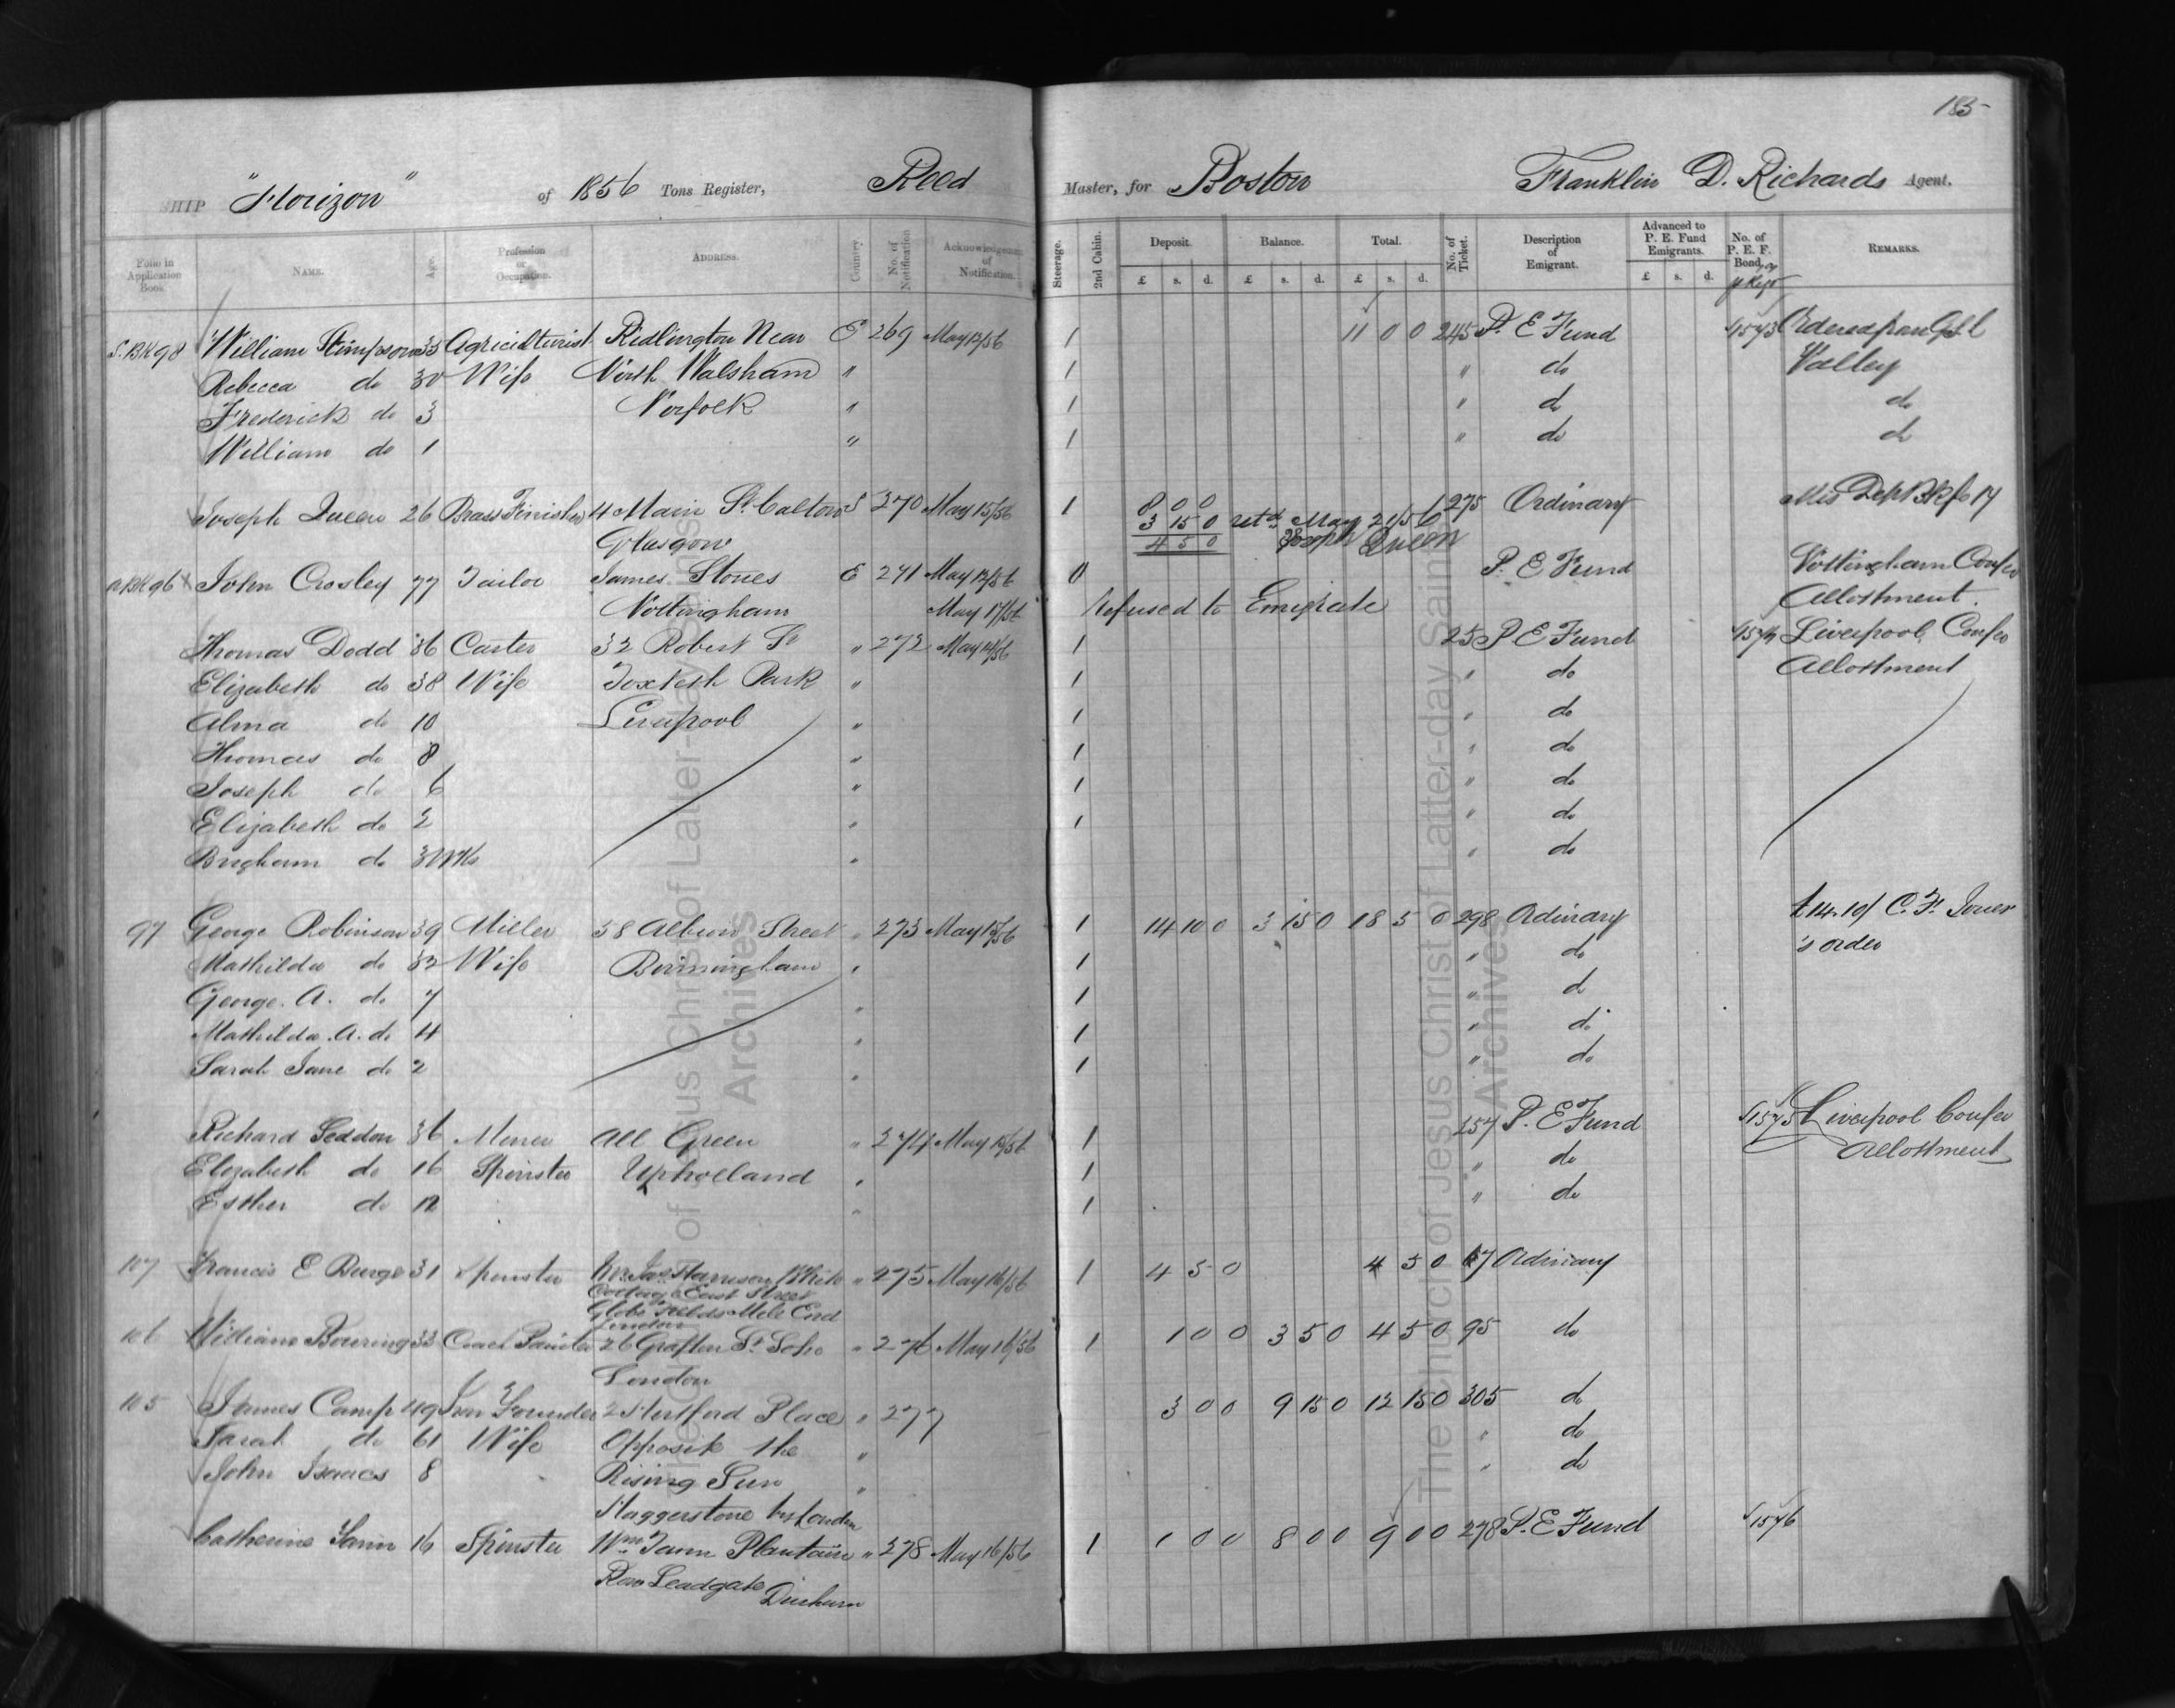 185
SHIP "Horizon" of 1856 Tons Register, Reed Master, for Boston Franklin D. Richards Agent.
Folio in Application Book. NAME. Age. Profession or Occupation. ADDRESS. Country No. of Notification Acknowledgement of Notification. Steerage. 2nd Cabin. Deposit. Balance. Total. No. of Ticket. Description of Emigrant. Advanced to P. E. Fund Emigrants. No. of P. E. F. Bond, REMARKS.
£ s. d. £ s. d. £ s. d. £ s. d.
S.BK 98 William Stimpson 35 Agriculturist Ridlington Near E 269 May 13/56 1 11 0 0 245 P. E Fund 1573 Ordered from G.S.L
Rebecca do 30 Wife North Walsham " 1 " do Valley
Frederick do 3 Norfolk " 1 " do do
William do 1 " 1 " do do
Joseph Queen 26 Brass Finisher 4 Main St. Calton S 270 May 15/56 1 0 0 0 275 Ordinary Mis Dep BK fo 17
3 15 0 Retd. May 21/56
Glasgow 4 5 0 Joseph Queen
BK 96 John Crosley 77 Tailor James Stones E 271 May 13/56 0 P. E Fund Nottingham Confce
Nottingham May 17/56 Refused to Emigrate Allotment.
Thomas Dodd 36 Carter 32 Robert St " 272 May 14/56 1 25 P E Fund 1574 Liverpool Confce
Elizabeth do 38 Wife Toxteth Park " 1 " do Allotment
Alma do 10 Liverpool " 1 " do
Thomas do 8 " 1 " do
Joseph do 6 " 1 " do
Elizabeth do 2 " 1 " do
Brigham do 3 Mths " " do
97 George Robinson 39 Miller 58 Albion Street " 273 May 15/56 1 14 10 0 3 15 0 18 5 0 298 Ordinary £14.10/ C. F. Jones
Mathilda do 32 Wife Birmingham " 1 " do 's order
George. A. do 7 " 1 " do
Mathilda. A. do 4 " 1 " do
Sarah Jane do 2 " 1 " do
Richard Seddon 36 Miner All Green " 274 May 15/56 1 257 P. E Fund 1575 Liverpool Confce
Elizabeth do 16 Spinster Upholland " 1 " do Allottment
Esther do 12 " 1 " do
107 Francis E Burge 31 Spinster Mr. Jas Harrison White " 275 May 16/56 1 4 5 0 4 5 0 67 Ordinary
Cottage East Street
Globe Fields Mile End
London
106 William Bowring 33 Coach Painter 26 Grafton St. Soho " 276 May 16/56 1 1 0 0 3 5 0 4 5 0 95 do
London
105 James Camp 49 Iron Founder 2 Hertford Place " 277 3 0 0 9 15 0 12 15 0 305 do
Sarah do 61 Wife Opposite the " " do
John Isaacs 8 Rising Sun " " do
Haggerstone London
Catherine Tann 16 Spinster Wm Tann Plantain " 278 May 16/56 1 1 0 0 8 0 0 9 0 0 278 P. E Fund 1576
Row Leadgate Durham
The Church of Jesus Christ of Latter-day Saints
Archives
The Church of Jesus Christ of Latter-day Saints
Archives